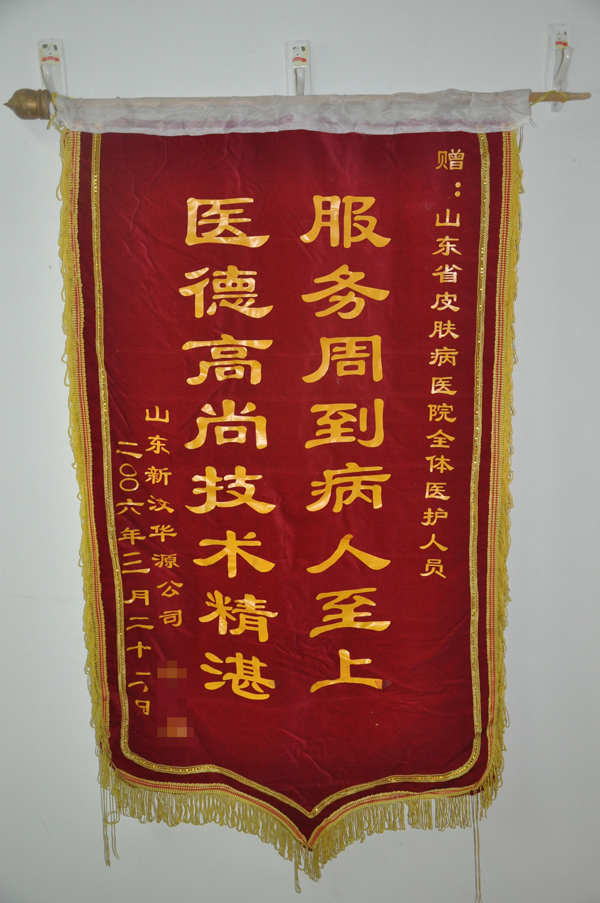 赠：山东省皮肤病医院全体医护人员
服务周到病人至上
医德高尚技术精湛
山东新汶华源公司
二00六年三月二十六日